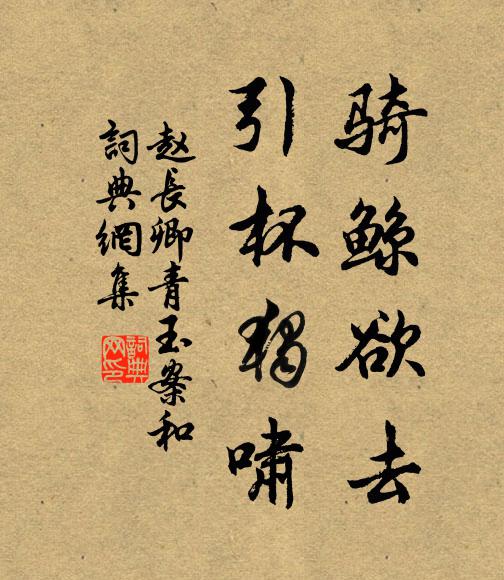 骑鲸欲去
引杯独啸
赵長卿青玉案和
詞典網集
詞典
网印